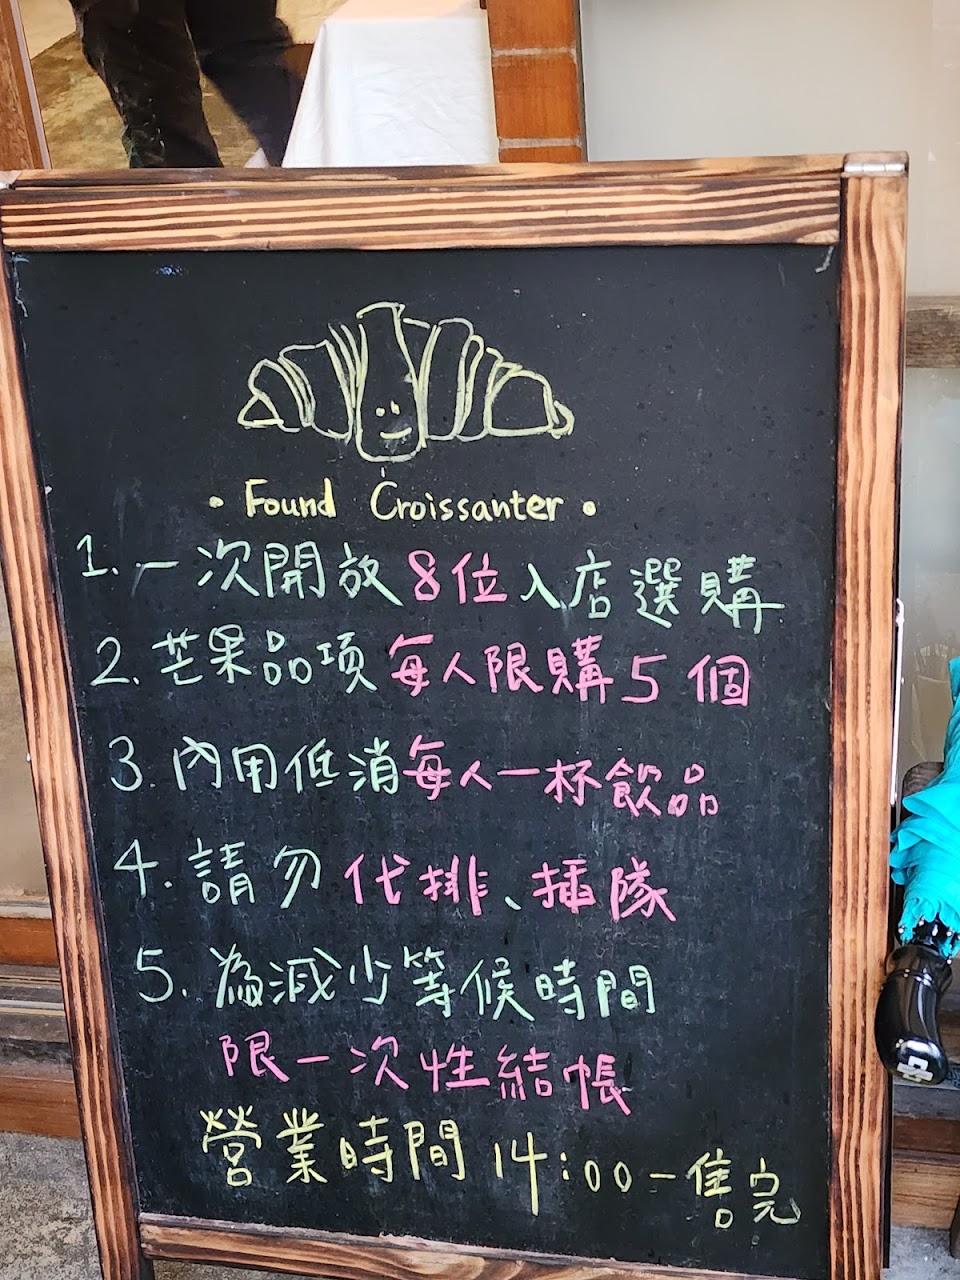 • Found Croissanter •
1. 一次開放8位入店選購
2. 芒果品項每人限購5個
3. 內用低消每人一杯飲品
4. 請勿代排、插隊
5. 為減少等候時間
限一次性結帳
營業時間 14:00-售完